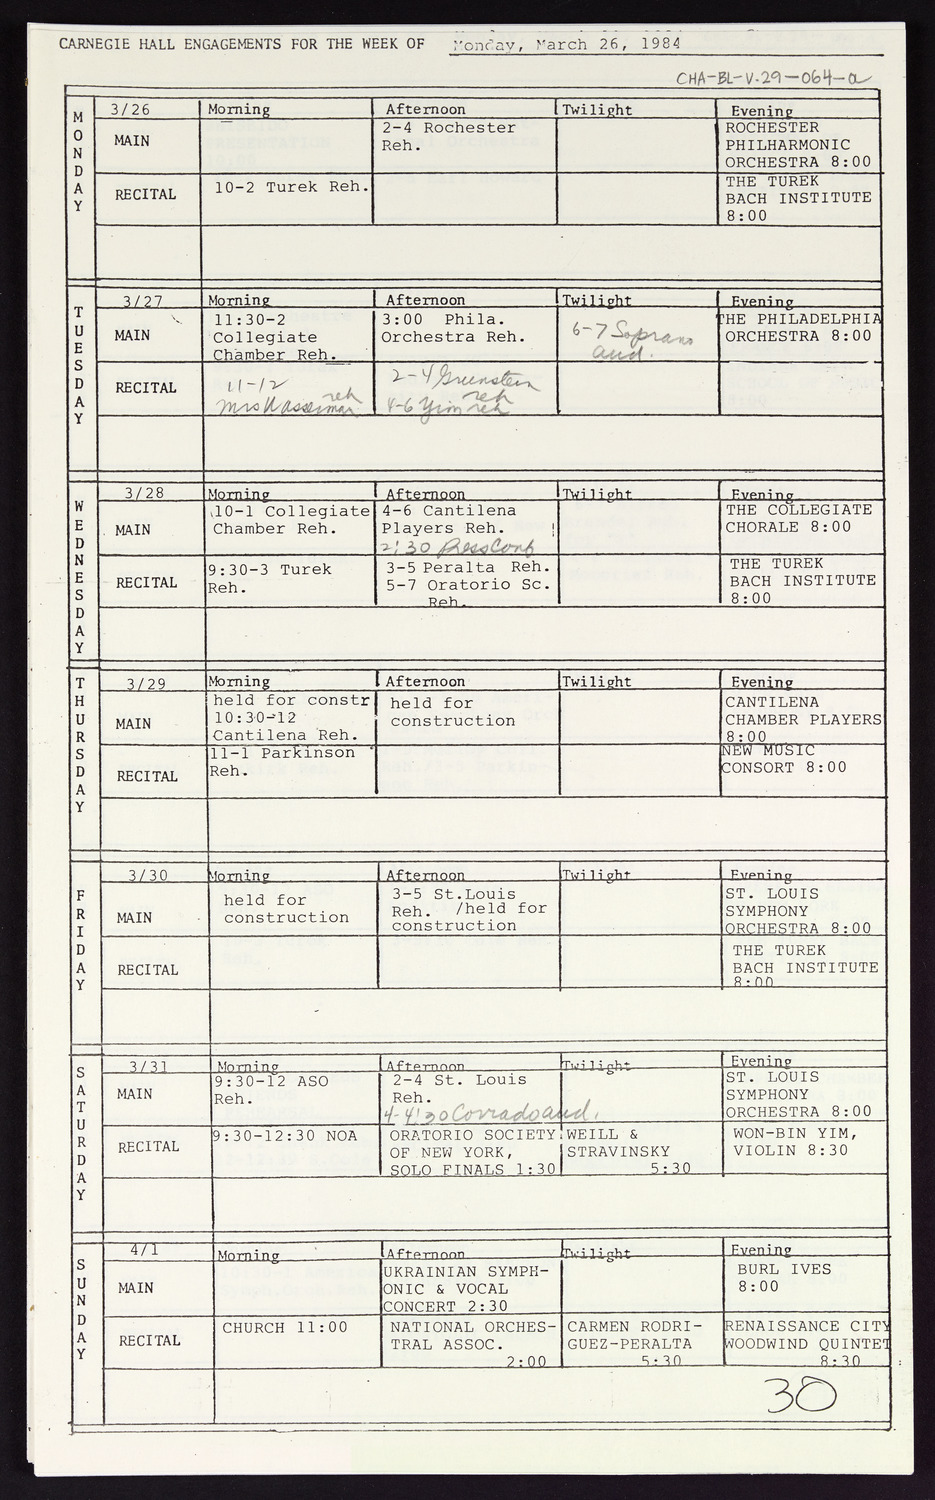 CARNEGIE HALL ENGAGEMENTS FOR THE WEEK OF Monday, March 26, 1984
CHA-BL-V.29-064-a
MONDAY
3/26 Morning Afternoon Twilight Evening
MAIN
2-4 Rochester
Reh.
ROCHESTER
PHILHARMONIC
ORCHESTRA 8:00
RECITAL
10-2 Turek Reh.
THE TUREK
BACH INSTITUTE
8:00
TUESDAY
3/27 Morning Afternoon Twilight Evening
MAIN
11:30-2
Collegiate
Chamber Reh.
3:00 Phila.
Orchestra Reh.
6-7 Soprano
aud.
THE PHILADELPHIA
ORCHESTRA 8:00
RECITAL
11-12
Mrs Wasserman reh
2-4 Greenstein
reh
4-6 Yim reh
WEDNESDAY
3/28 Morning Afternoon Twilight Evening
MAIN
10-1 Collegiate
Chamber Reh.
4-6 Cantilena
Players Reh.
2:30 Press Conf
THE COLLEGIATE
CHORALE 8:00
RECITAL
9:30-3 Turek
Reh.
3-5 Peralta Reh.
5-7 Oratorio Sc.
Reh.
THE TUREK
BACH INSTITUTE
8:00
THURSDAY
3/29 Morning Afternoon Twilight Evening
MAIN
held for constr
10:30-12
Cantilena Reh.
held for
construction
CANTILENA
CHAMBER PLAYERS
8:00
RECITAL
11-1 Parkinson
Reh.
NEW MUSIC
CONSORT 8:00
FRIDAY
3/30 Morning Afternoon Twilight Evening
MAIN
held for
construction
3-5 St.Louis
Reh. /held for
construction
ST. LOUIS
SYMPHONY
ORCHESTRA 8:00
RECITAL
THE TUREK
BACH INSTITUTE
8:00
SATURDAY
3/31 Morning Afternoon Twilight Evening
MAIN
9:30-12 ASO
Reh.
2-4 St. Louis
Reh.
4-4:30 Corrado aud.
ST. LOUIS
SYMPHONY
ORCHESTRA 8:00
RECITAL
9:30-12:30 NOA
ORATORIO SOCIETY
OF NEW YORK,
SOLO FINALS 1:30
WEILL &
STRAVINSKY
5:30
WON-BIN YIM,
VIOLIN 8:30
SUNDAY
4/1 Morning Afternoon Twilight Evening
MAIN
UKRAINIAN SYMPH-
ONIC & VOCAL
CONCERT 2:30
BURL IVES
8:00
RECITAL
CHURCH 11:00
NATIONAL ORCHES-
TRAL ASSOC.
2:00
CARMEN RODRI-
GUEZ-PERALTA
5:30
RENAISSANCE CITY
WOODWIND QUINTET
8:30
30